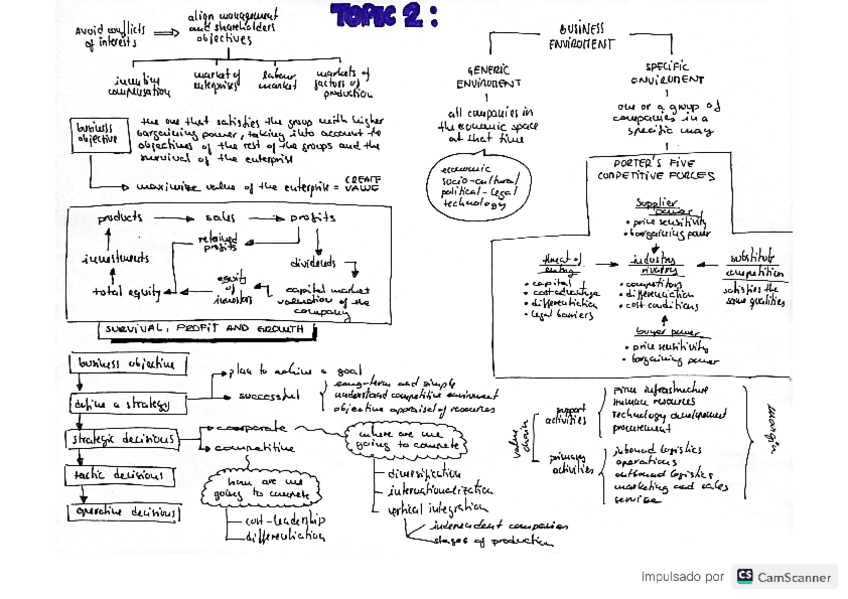 TOPIC 2:
avoid conflicts
of interests
align management
and shareholders
objectives
incentive
compensation
market of
enterprises
labour
market
markets of
factors of
production
business
objective
the one that satisfies the group with higher
bargaining power, taking into account to
objectives of the rest of the groups and the
survival of the enterprise
maximize value of the enterprise = CREATE
VALUE
products
sales
profits
retained
profits
investments
dividends
total equity
equity
of
investors
capital market
valuation of the
company
SURVIVAL, PROFIT AND GROWTH
business objective
define a strategy
strategic decisions
tactic decisions
operative decisions
plan to achieve a goal
successful
long-term and simple
understand competitive environment
objective appraisal of resources
corporate
competitive
how are we
going to compete
cost-leadership
differentiation
where are we
going to compete
diversification
internationalization
vertical integration
independent companies
stages of production
BUSINESS
ENVIROMENT
GENERIC
ENVIROMENT
all companies in
the economic space
at that time
economic
socio-cultural
political-legal
technology
SPECIFIC
ENVIROMENT
one or a group of
companies in a
specific way
PORTER'S FIVE
COMPETITIVE FORCES
supplier
power
• price sensitivity
• bargaining power
threat of
entry
• capital
• cost advantage
• differentiation
• legal barriers
industry
rivalry
• competitors
• differenciation
• cost conditions
substitute
competition
satisfies the
same qualities
buyer power
• price sensitivity
• bargaining power
value
chain
support
activities
infrastructure
human resources
technology development
procurement
primary
activities
inbound logistics
operations
outbound logistics
marketing and sales
service
margin
Impulsado por CS CamScanner